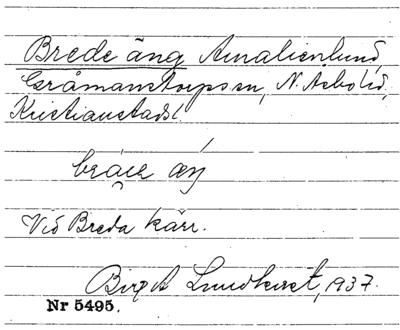 Brede äng Amalienlund,
Gråmanstorps sn, N. Åsbo hd,
Kristianstads l
Vid Breda kärr.
Birgit Lundkvist, 1937.
Nr 5495.